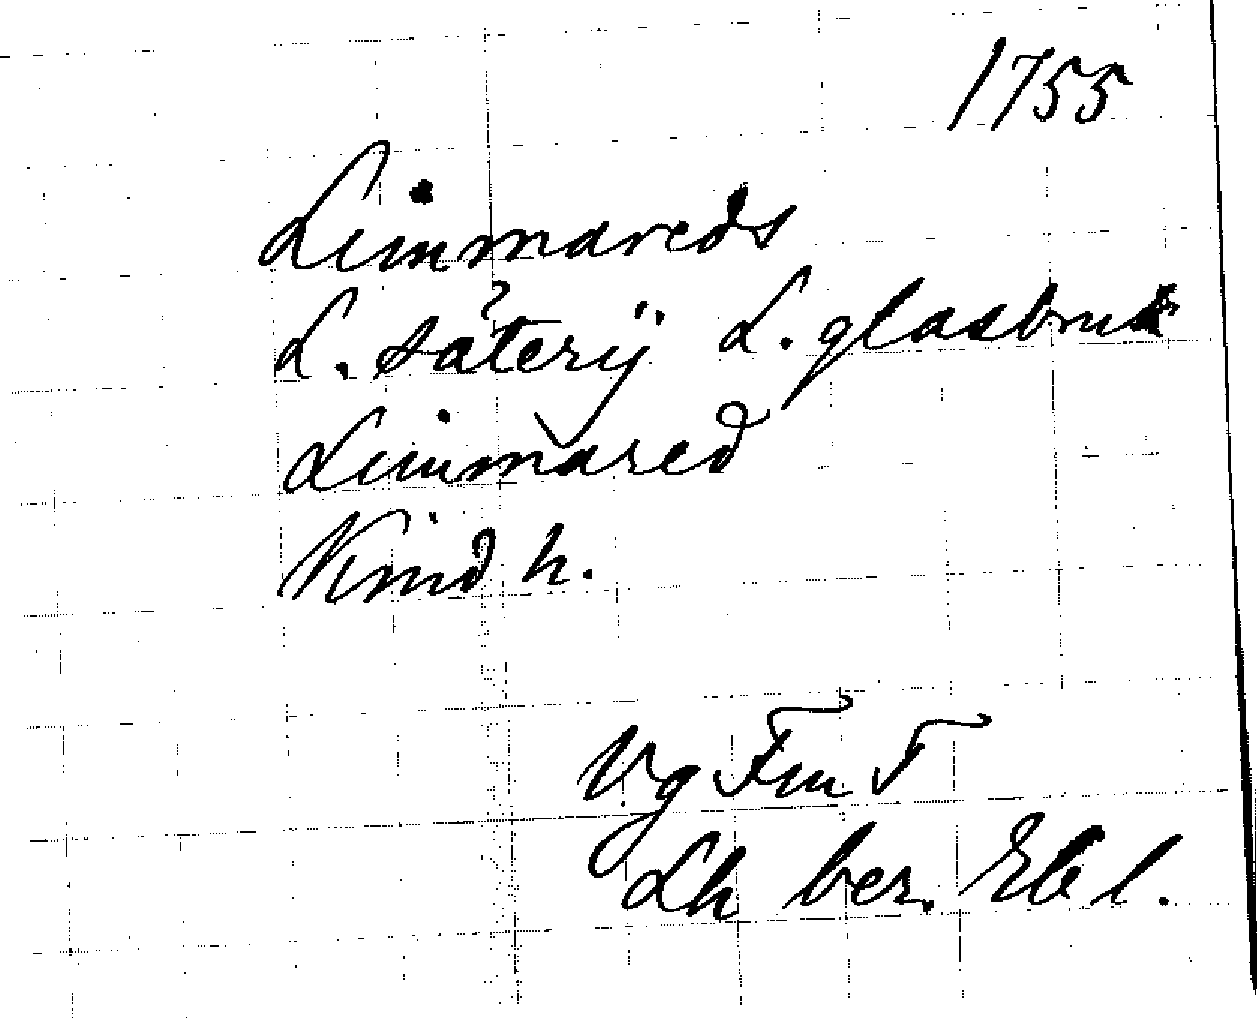 1755
Limmareds
L. säterij L. glasbruk
Limmared
Kind h.
Vg FmT
Lh ber. Elc l.